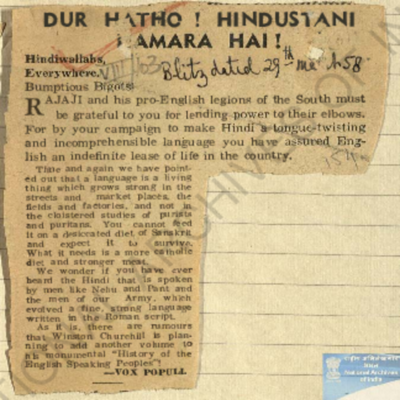 DUR HATHO ! HINDUSTANI
HAMARA HAI !
Hindiwallahs,
Everywhere.
Bumptious Bigots!
Blitz dated 29th March 58
RAJAJI and his pro-English legions of the South must
be grateful to you for lending power to their elbows.
For by your campaign to make Hindi a tongue-twisting
and incomprehensible language you have assured Eng-
lish an indefinite lease of life in the country.
Time and again we have point-
ed out that a language is a living
thing which grows strong in the
streets and market places, the
fields and factories, and not in
the cloistered studies of purists
and puritans. You cannot feed
it on a desiccated diet of Sanskrit
and expect it to survive.
What it needs is a more catholic
diet and stronger meat.
We wonder if you have ever
heard the Hindi that is spoken
by men like Nehu and Pant and
the men of our Army, which
evolved a fine, strong language
written in the Roman script.
As it is, there are rumours
that Winston Churchill is plan-
ning to add another volume to
his monumental "History of the
English Speaking Peoples"!
—VOX POPULI.
National Archives